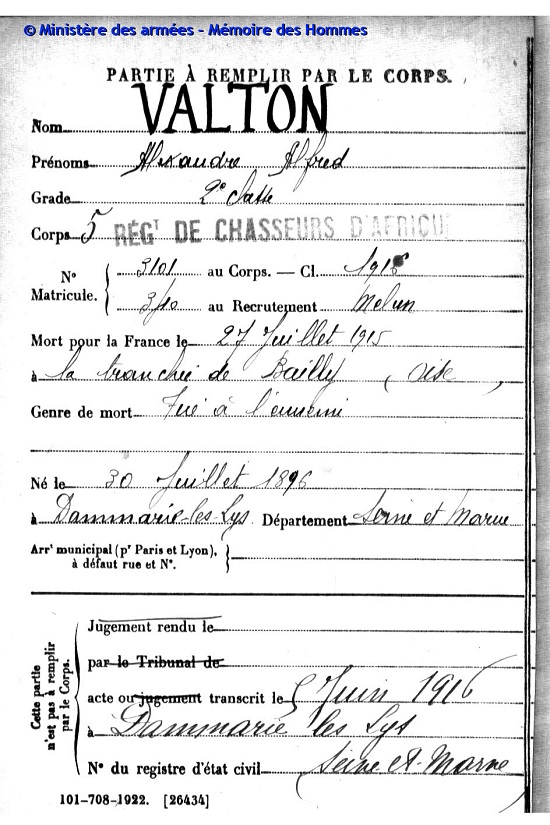 © Ministère des armées - Mémoire des Hommes
PARTIE À REMPLIR PAR LE CORPS.
Nom VALTON
Prénoms Alexandre Alfred
Grade 2e classe
Corps 5 RÉGT DE CHASSEURS D'AFRIQU
N° Matricule. { 3101 au Corps. — Cl. 1916
310 au Recrutement Melun
Mort pour la France le 27 Juillet 1915
à la tranchée de Bailly (Oise)
Genre de mort Tué à l'ennemi
Né le 30 Juillet 1896
à Dammarie-les-Lys Département Seine et Marne
Arrt municipal (pr Paris et Lyon),
à défaut rue et N°.
Cette partie n'est pas à remplir par le Corps.
Jugement rendu le
par le Tribunal de
acte ou jugement transcrit le 5 Juin 1916
à Dammarie les Lys
N° du registre d'état civil Seine et Marne
101-708-1922. [26434]